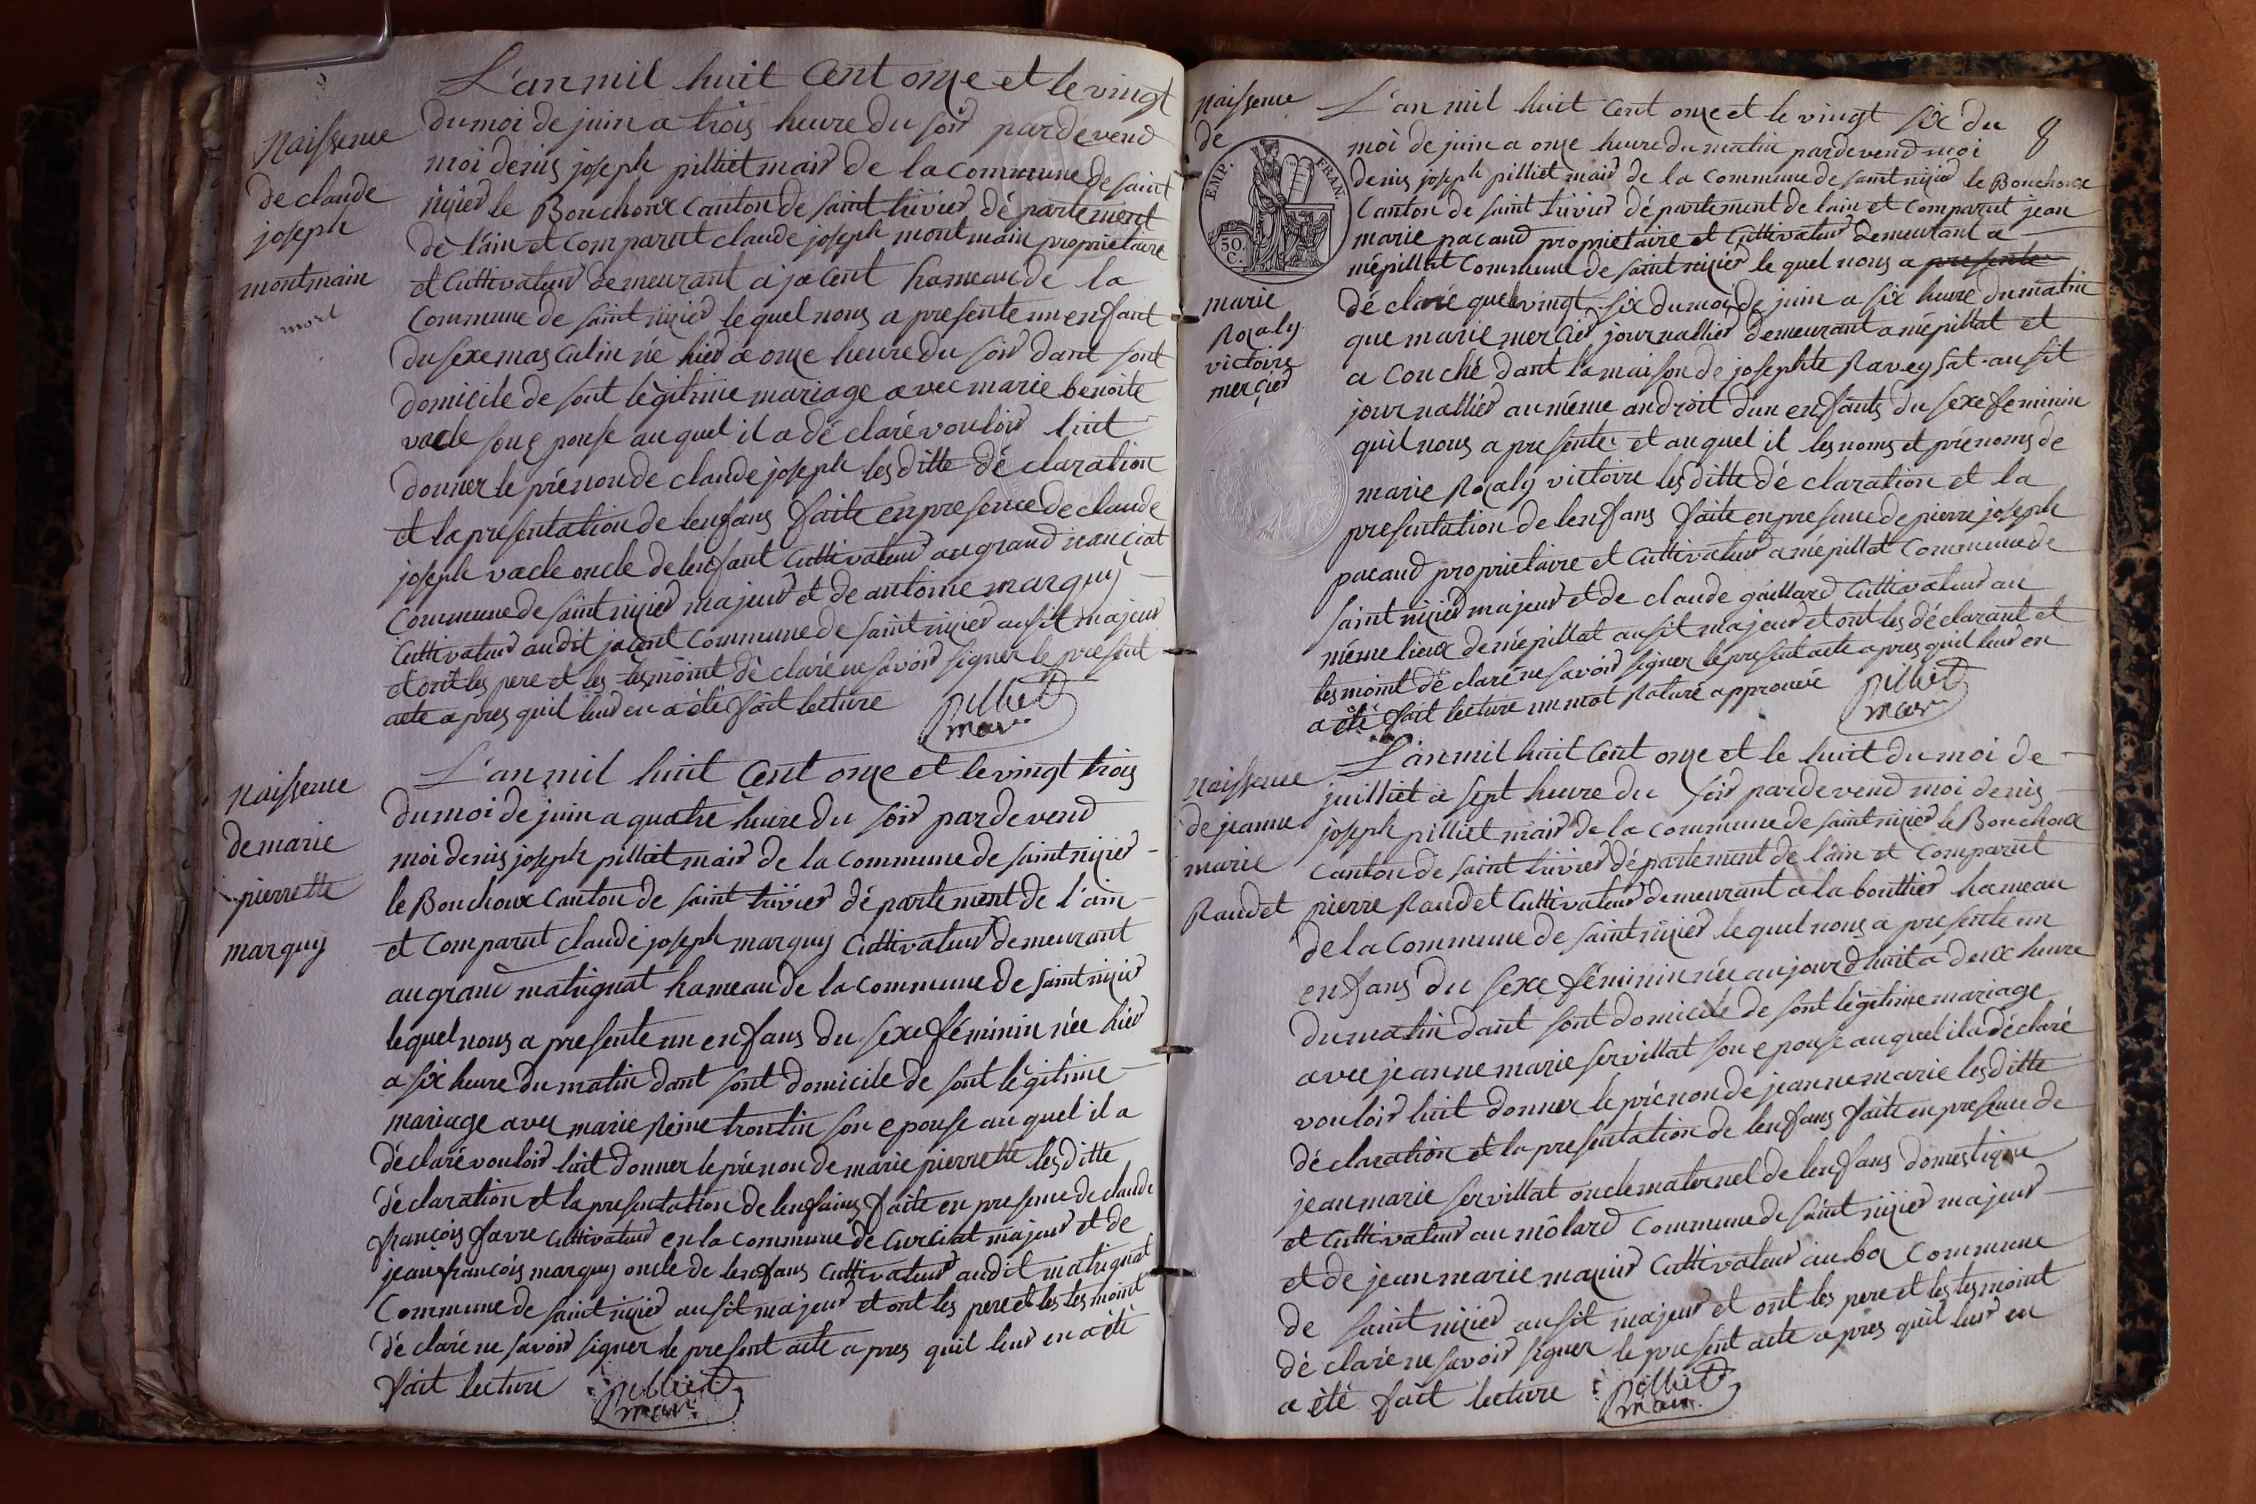 L'an mil huit Cent onze et le vingt
du moi de juin a trois heure du soir par devend
moi denis joseph pilliet mair de la Commune de saint
nizier le Bouchoux Canton de saint trivier département
de l'ain et Comparut claude joseph montmain proprietaire
et Cultivateur demeurant a jacent hameau de la
Commune de saint nizier le quel nous a presente un enfant
du sexe masculin né hier a onze heure du soir dant sont
domicile de sont légitime mariage avec marie benoite
vacle son epouse au quel il a déclaré vouloir luit
donner le prénon de claude joseph les ditte déclaration
et la presentation de lenfans faite en presence de claude
joseph vacle oncle de lenfant Cultivateur au grand
Commune de saint nizier majeur et de antoine marguy
Cultivateur audit jacent Commune de saint nizier ausit majeur
et ont les pere et les tesmoint déclaré ne savoir signer le present
acte apres quil leur en a été fait lecture
pilliet
mair
Naissence
de claude
joseph
montmain
L'an mil huit Cent onze et le vingt trois
du moi de juin a quatre heure du soir par devend
moi denis joseph pilliet mair de la Commune de saint nizier
le Bouchoux Canton de saint trivier département de l'ain
et Comparut claude joseph marguy Cultivateur demeurant
au grand matrignat hameau de la Commune de saint nizier
lequel nous a presente un enfans du sexe féminin née hier
a six heure du matin dant sont domicile de sont légitime
mariage avec marie Reine trontin son epouse au quel il a
déclaré vouloir luit donner le prénon de marie pierrette les ditte
déclaration et la presentation de lenfans faite en presence de claude
françois favre Cultivateur en la Commune de Curciat majeur et de
jean françois marguy oncle de lenfans Cultivateur audit matrignat
Commune de saint nizier ausit majeur et ont les pere et les tesmoint
déclaré ne savoir signer le present acte apres quil leur en a été
fait lecture
pilliet
mair
Naissence
de marie
pierrette
marguy
8
L'an mil huit Cent onze et le vingt six du
moi de juin a onze heure du matin par devend moi
denis joseph pilliet mair de la Commune de saint nizier le Bouchoux
Canton de saint trivier département de lain et Comparut jean
marie pacaud proprietaire et Cultivateur demeurant a
mépillat Commune de saint nizier le quel nous a presente
déclaré que le vingt six du moi de juin a six heure du matin
que marie mercier journallier demeurant a mépillat et
a Couché dant la maison de josephte Raveysat ausit
journallier au même androit dun enfants du sexe féminin
quil nous a presente et au quel il les noms et prénoms de
marie Rozaly victoire les ditte déclaration et la
presentation de lenfans faite en presence de pierre joseph
pacaud proprietaire et Cultivateur a mépillat Commune de
saint nizier majeur et de claude gaillard Cultivateur au
même lieux de mépillat ausit majeur et ont les déclarant et
tesmoint déclaré ne savoir signer le present acte apres quil leur en
a été fait lecture un mot Raturé approuvé
pilliet
mair
Naissence
de
EMP. FRAN.
50.
C.
marie
Rozaly
victoire
mercier
L'an mil huit Cent onze et le huit du moi de
juilliet a sept heure du soir par devend moi denis
joseph pilliet mair de la Commune de saint nizier le Bouchoux
Canton de saint trivier département de lain et Comparut
pierre Raudet Cultivateur demeurant a la bouttier hameau
de la Commune de saint nizier le quel nous a presente un
enfans du sexe féminin née aujourdhuit a deux heure
du matin dant sont domicile de sont légitime mariage
avec jeanne marie servillat son epouse au quel il a déclaré
vouloir luit donner le prénon de jeanne marie les ditte
déclaration et la presentation de lenfans faite en presence de
jean marie servillat oncle maternel de lenfans domestique
et Cultivateur au môlard Commune de saint nizier majeur
et de jean marie mazuir Cultivateur au boz Commune
de saint nizier ausit majeur et ont les pere et les tesmoint
déclaré ne savoir signer le present acte apres quil leur en
a été fait lecture
pilliet
mair
Naissence
de jeanne
marie
Raudet